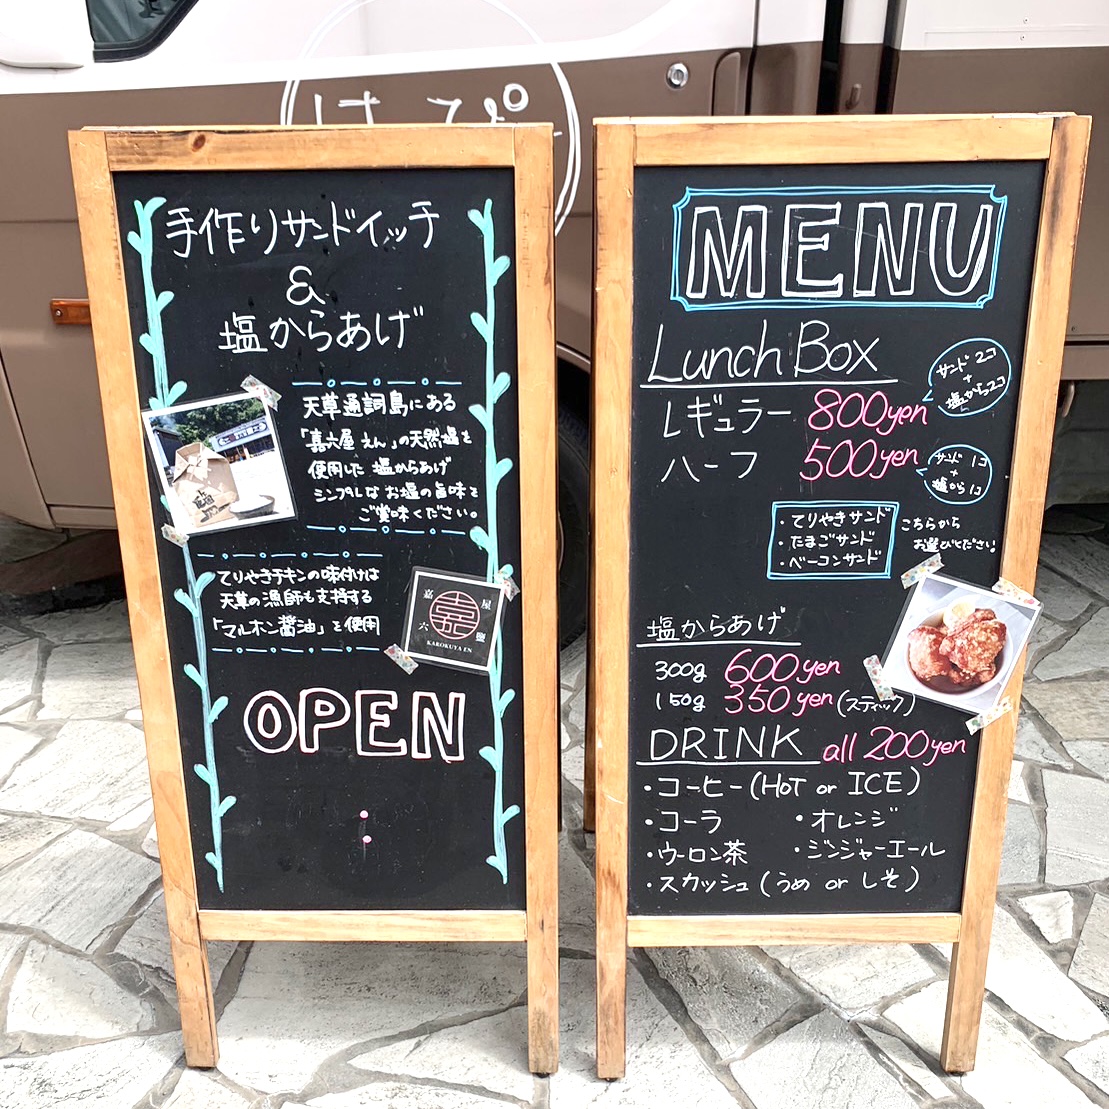 手作りサンドイッチ
&
塩からあげ
天草通詞島にある
「嘉六屋 えん」の天然塩を
使用した 塩からあげ
シンプルな お塩の旨味を
ご賞味ください。
てりやきチキンの味付けは
天草の漁師も支持する
「マルホン醤油」を使用
嘉屋
六鹽
KAROKUYA EN
OPEN
:
MENU
Lunch Box
レギュラー 800yen
サンド 2コ
+
塩から2コ
ハーフ 500yen
サンド 1コ
+
塩から1コ
・てりやきサンド
・たまごサンド
・ベーコンサンド
こちらから
お選びください!
塩からあげ
300g 600yen
150g 350yen (スティック)
DRINK all 200yen
・コーヒー (HOT or ICE)
・コーラ ・オレンジ
・ウーロン茶 ・ジンジャーエール
・スカッシュ (うめ or しそ)